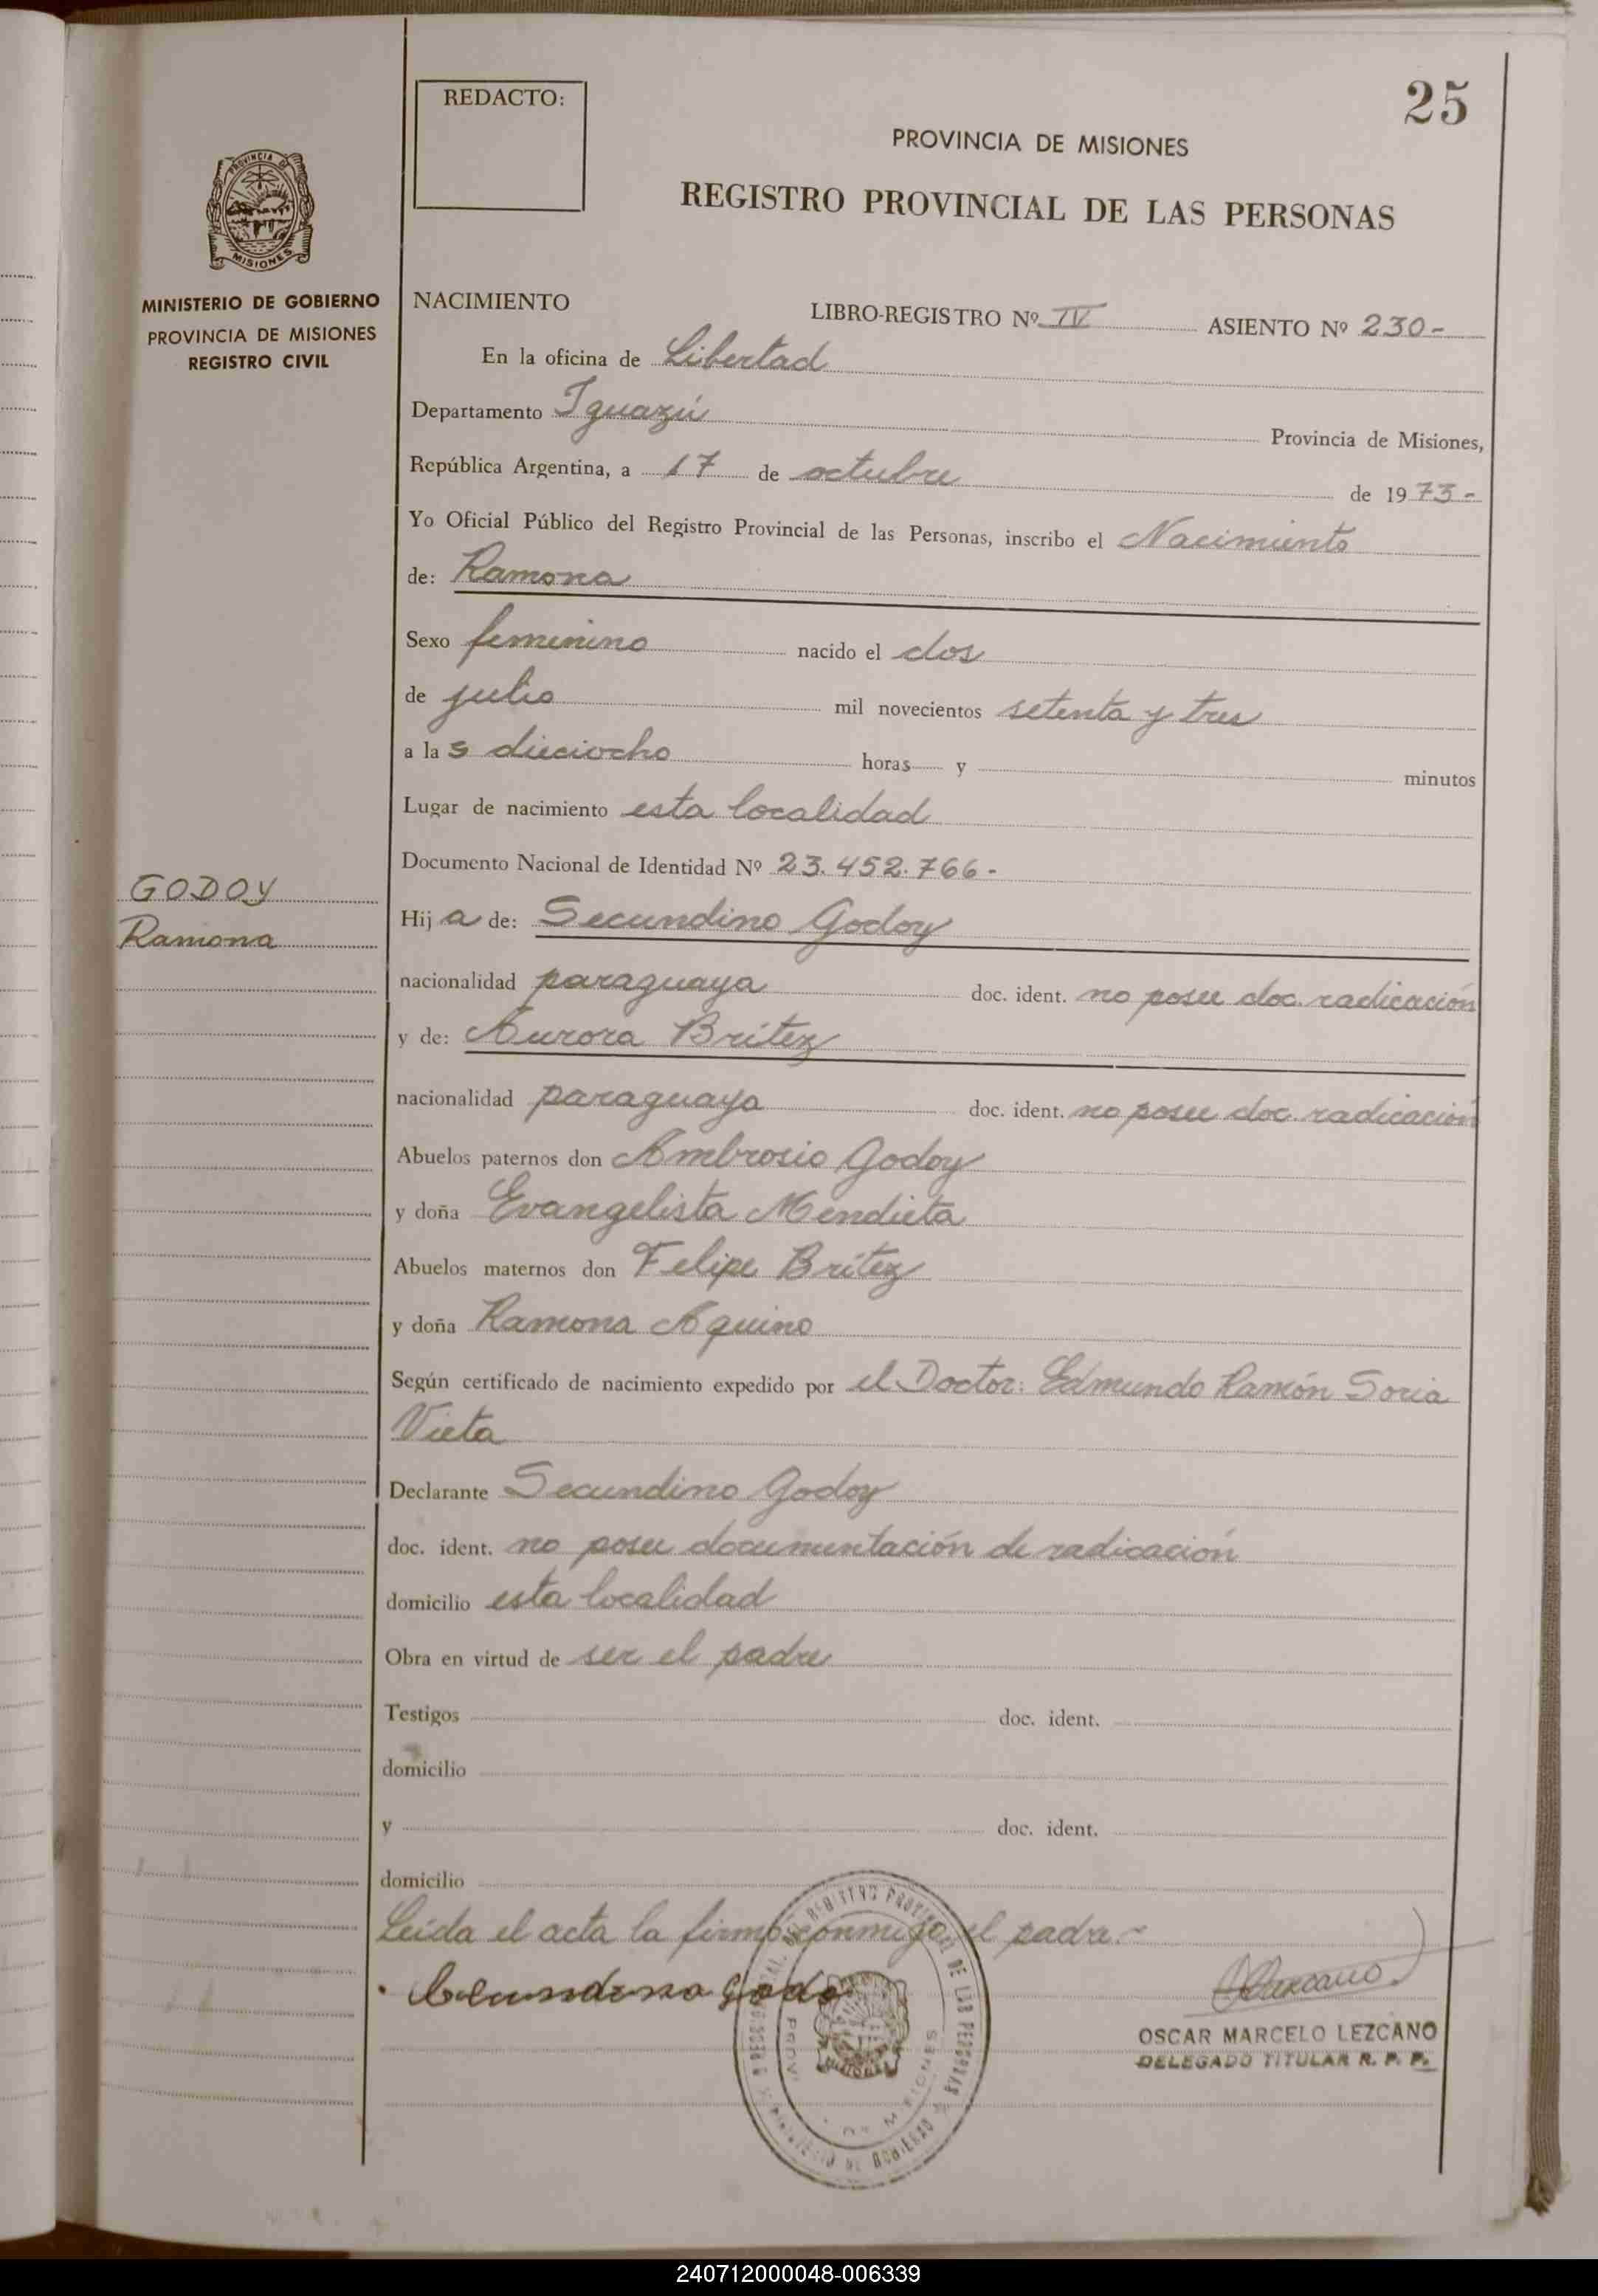 25
REDACTO:
PROVINCIA DE MISIONES
REGISTRO PROVINCIAL DE LAS PERSONAS
PROVINCIA DE
MISIONES
MINISTERIO DE GOBIERNO
PROVINCIA DE MISIONES
REGISTRO CIVIL
NACIMIENTO LIBRO-REGISTRO Nº IV ASIENTO Nº 230-
En la oficina de Libertad
Departamento Iguazú Provincia de Misiones,
República Argentina, a 17 de octubre de 1973-
Yo Oficial Público del Registro Provincial de las Personas, inscribo el Nacimiento
de: Ramona
Sexo femenino nacido el dos
de julio mil novecientos setenta y tres
a las dieciocho horas y minutos
Lugar de nacimiento esta localidad
Documento Nacional de Identidad Nº 23.452.766-
GODOY
Ramona
Hija de: Secundino Godoy
nacionalidad paraguaya doc. ident. no posee doc. radicación
y de: Aurora Brítez
nacionalidad paraguaya doc. ident. no posee doc. radicación
Abuelos paternos don Ambrosio Godoy
y doña Evangelista Mendieta
Abuelos maternos don Felipe Brítez
y doña Ramona Aquino
Según certificado de nacimiento expedido por el Doctor: Edmundo Ramón Soria
Vieta
Declarante Secundino Godoy
doc. ident. no posee documentación de radicación
domicilio esta localidad
Obra en virtud de ser el padre
Testigos doc. ident.
domicilio
y doc. ident.
domicilio
Leída el acta la firmó conmigo el padre.-
OSCAR MARCELO LEZCANO
DELEGADO TITULAR R. P. P.
240712000048-006339